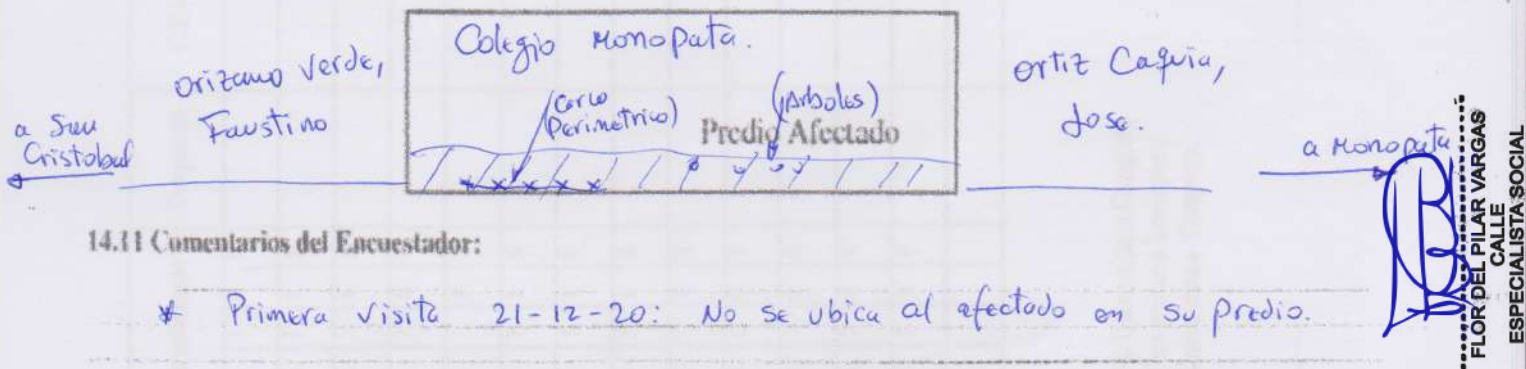 Colegio Monopata.
Orizano Verde,
Faustino
(Cerco
Perimetrico)
(Arboles)
Predio Afectado
Ortiz Caquia,
Jose.
a San
Cristobal
a Monopata
14.11 Comentarios del Encuestador:
* Primera visita 21-12-20: No se ubica al afectado en su predio.
FLOR DEL PILAR VARGAS
CALLE
ESPECIALISTA SOCIAL